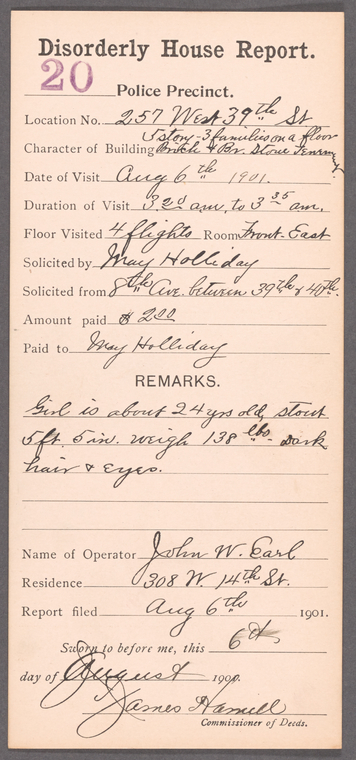 Disorderly House Report.
20
Police Precinct.
Location No. 257 West 39th St
5 story - 3 families on a floor
Character of Building Brick & Br. Stone Tenement
Date of Visit Aug 6th 1901.
Duration of Visit 3 20 am, to 3 35 am.
Floor Visited 4 flights Room Front-East
Solicited by May Holliday
Solicited from 8th Ave. between 39th & 40th.
Amount paid $ 2 00
Paid to May Holliday
REMARKS.
Girl is about 24 yrs old, stout
5 ft. 5 in. weigh 138 lbs. Dark
hair & eyes.
Name of Operator John W. Earl
Residence 308 W. 14th St.
Report filed Aug 6th 1901.
Sworn to before me, this 6th
day of August 190
James Hamell
Commissioner of Deeds.